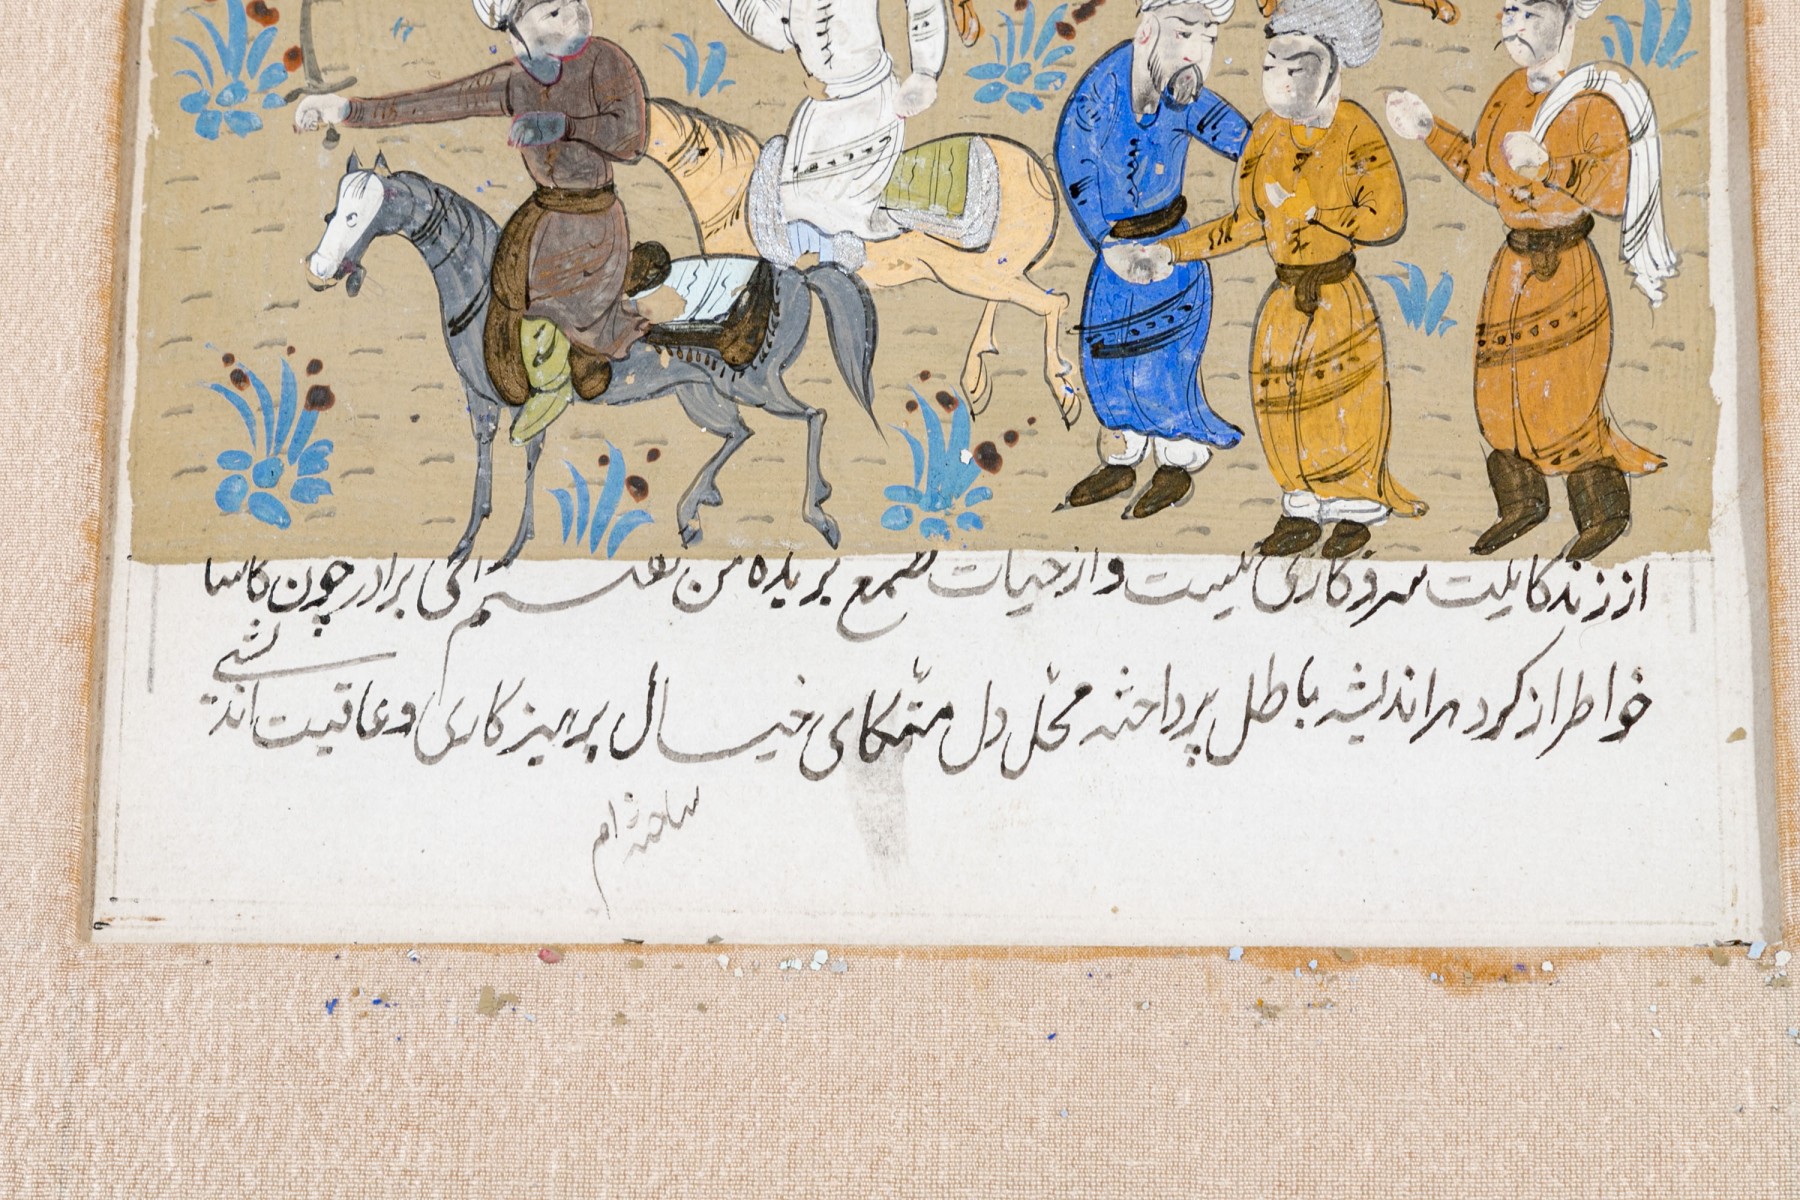 از زندگانیت سروکاری نیست و از حیات طمع بریده من نعیستم ای برادر چون کاسا
خواطر از کرد هر اندیشه باطل پرداخته محل دل متّکای خیال پرهیزکاری و عاقبت اندیشی
ساخته ام